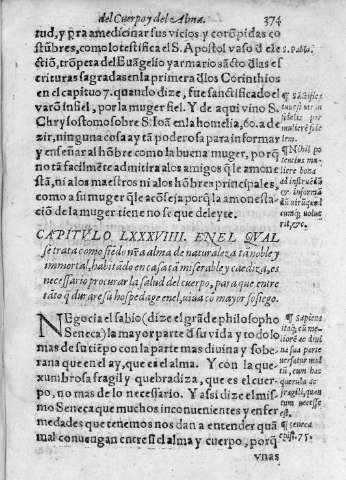 del Cuerpo y del Alma. 374
tud, y pra amedicinar sus vicios y corōpidas co
stūbres, como lo testifica el S. Apostol vaso d ele
ctiō, trōpeta del Euāgelio y armario sācto d las es
crituras sagradas en la primera d los Corinthios
en el capituo 7. quando dize, fue sanctificado el
varō infiel, por la muger fiel. Y de aqui vino S.
Chrysostomo sobre S. Ioā en la homelia, 60. a de
zir, ninguna cosa ay tā poderosa para informar
y enseñar al hōbre como la buena muger, porq̄
no tā facilmēte admitira a los amigos q̄ le amone
stā, ni a los maestros ni a los hōbres principales,
como a su muger q̄ le acōseja porq̄ la amonesta-
ciō de la muger tiene no se que deleyte.
S. Pablo.
¶ Sāctifica
tus est vir in
fidelis per
mulierē fide
lem.
¶ Nihil po
tentius mu-
liere bona
ad instruēdū
& informā
dū virū quod
cumq; volue
rit, &c.
CAPITVLO LXXXVIIII. EN EL QVAL
se trata como siēdo nr̄a alma de naturaleza tā noble y
immortal, habitādo en casa tā miserable y caediza, es
necessario procurar la salud del cuerpo, para que entre
tāto q̄ durare su hospedage en el, viua cō mayor sosiego.
NEgocia el sabio (dize el grāde philosopho
Seneca) la mayor parte d su vida y todo lo
mas de su tiēpo con la parte mas diuina y sobe-
rana que en el ay, que es el alma. Y con la que-
xumbrosa fragil y quebradiza, que es el cuer-
po, no mas de lo necessario. Y assi dize el mis-
mo Seneca que muchos inconuenientes y enfer
medades que tenemos nos dan a entender quā
mal conuengan entre si el alma y cuerpo, porq̄
¶ Sapiens
itaq; cū me-
liorē ac diui
na sua parte
versatur mul
tū, cum hac
querula ac
fragili, quan
tum necesse
est.
¶ Seneca
epist. 75.
vnas